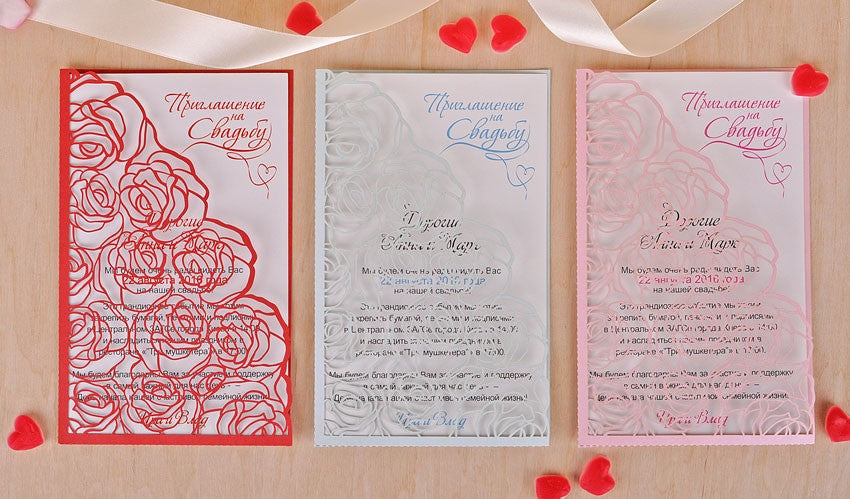 Приглашение
на
Свадьбу
Дорогие
Анна и Марк
Мы будем очень рады видеть Вас
22 августа 2016 года
на нашей свадьбе!
Это грандиозное событие мы хотим
закрепить бумагой, печатями и подписями
в Центральном ЗАГСе города в 14.00
и насладиться нашим праздником в
ресторане «Три мушкетера» в 17.00.
Мы будем благодарны Вам за участие и поддержку
в самый важный для нас день –
День начала нашей счастливой семейной жизни!
Ира и Влад
Приглашение
на
Свадьбу
Дорогие
Анна и Марк
Мы будем очень рады видеть Вас
22 августа 2016 года
на нашей свадьбе!
Это грандиозное событие мы хотим
закрепить бумагой, печатями и подписями
в Центральном ЗАГСе города в 14.00
и насладиться нашим праздником в
ресторане «Три мушкетера» в 17.00.
Мы будем благодарны Вам за участие и поддержку
в самый важный для нас день –
День начала нашей счастливой семейной жизни!
Ира и Влад
Приглашение
на
Свадьбу
Дорогие
Анна и Марк
Мы будем очень рады видеть Вас
22 августа 2016 года
на нашей свадьбе!
Это грандиозное событие мы хотим
закрепить бумагой, печатями и подписями
в Центральном ЗАГСе города в 14.00
и насладиться нашим праздником в
ресторане «Три мушкетера» в 17.00.
Мы будем благодарны Вам за участие и поддержку
в самый важный для нас день –
День начала нашей счастливой семейной жизни!
Ира и Влад